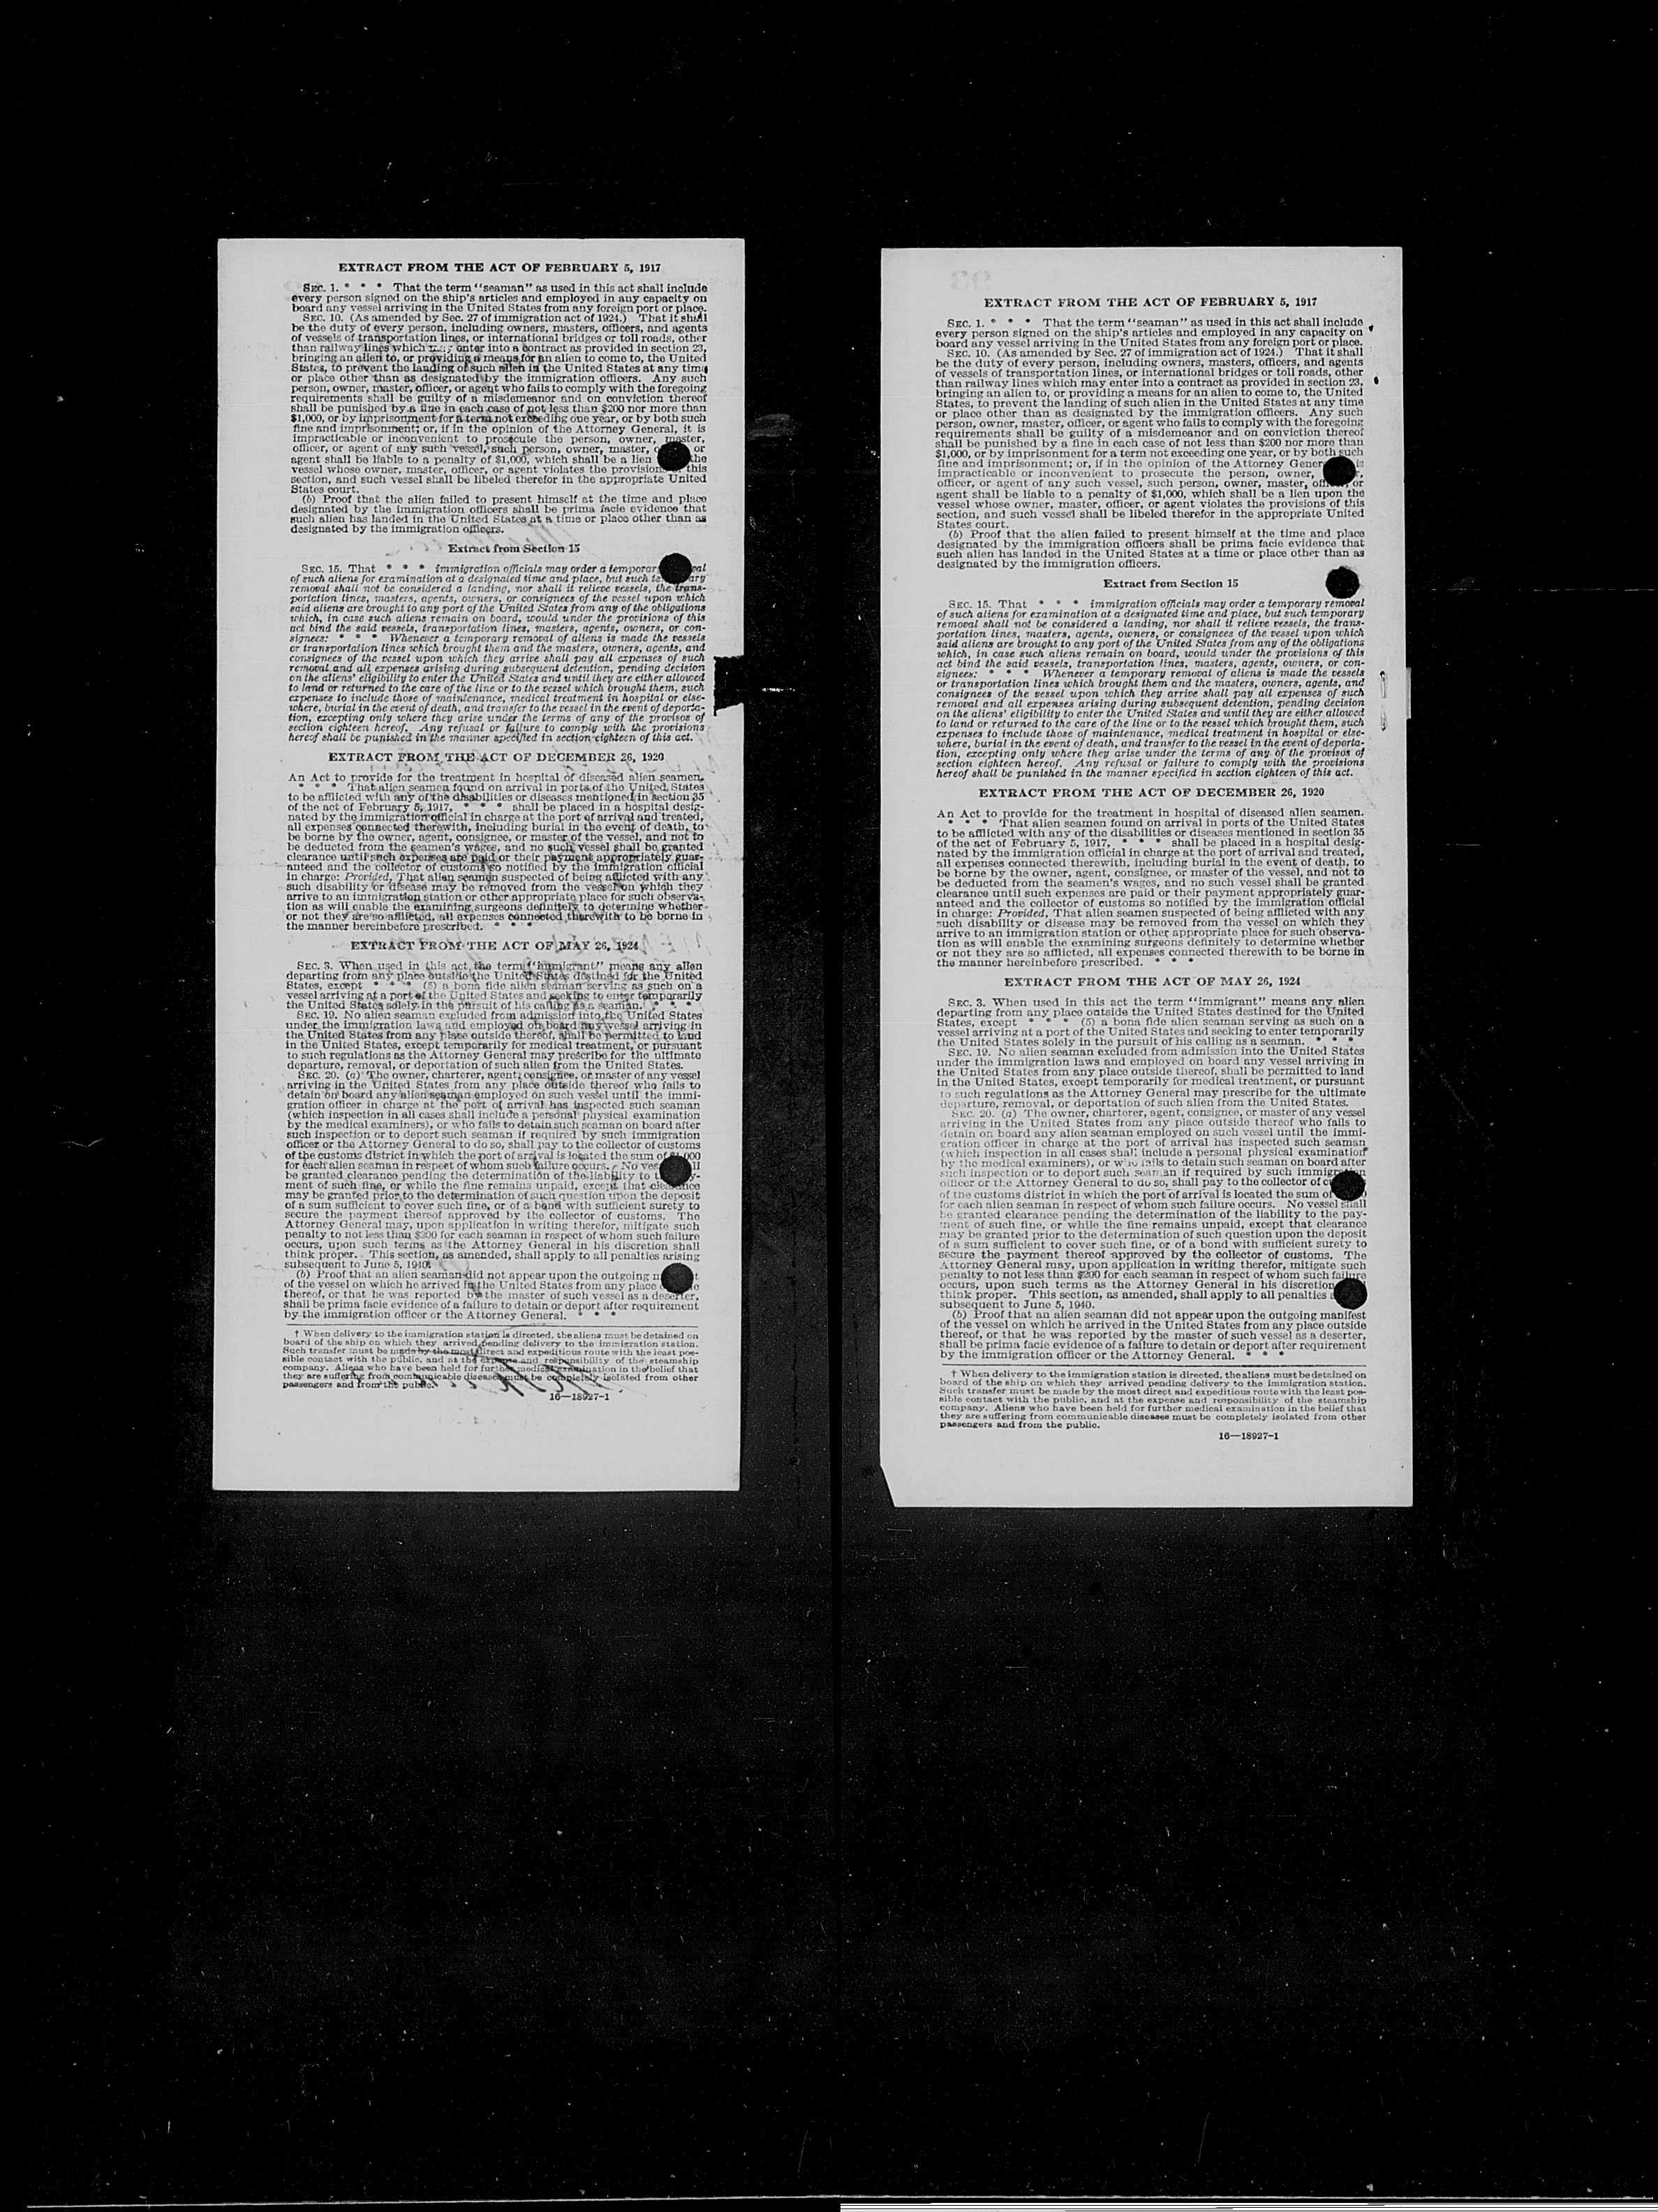 EXTRACT FROM THE ACT OF FEBRUARY 5, 1917
SEC. 1. * * * That the term "seaman" as used in this act shall include
every person signed on the ship's articles and employed in any capacity on
board any vessel arriving in the United States from any foreign port or place.
SEC. 10. (As amended by Sec. 27 of immigration act of 1924.) That it shall
be the duty of every person, including owners, masters, officers, and agents
of vessels of transportation lines, or international bridges or toll roads, other
than railway lines which may enter into a contract as provided in section 23,
bringing an alien to, or providing a means for an alien to come to, the United
States, to prevent the landing of such alien in the United States at any time
or place other than as designated by the immigration officers. Any such
person, owner, master, officer, or agent who fails to comply with the foregoing
requirements shall be guilty of a misdemeanor and on conviction thereof
shall be punished by a fine in each case of not less than $200 nor more than
$1,000, or by imprisonment for a term not exceeding one year, or by both such
fine and imprisonment; or, if in the opinion of the Attorney General, it is
impracticable or inconvenient to prosecute the person, owner, master,
officer, or agent of any such vessel, such person, owner, master, or
agent shall be liable to a penalty of $1,000, which shall be a lien the
vessel whose owner, master, officer, or agent violates the provisions this
section, and such vessel shall be libeled therefor in the appropriate United
States court.
(b) Proof that the alien failed to present himself at the time and place
designated by the immigration officers shall be prima facie evidence that
such alien has landed in the United States at a time or place other than as
designated by the immigration officers.
Extract from Section 15
SEC. 15. That * * * immigration officials may order a temporary
of such aliens for examination at a designated time and place, but such
removal shall not be considered a landing, nor shall it relieve vessels, the trans-
portation lines, masters, agents, owners, or consignees of the vessel upon which
said aliens are brought to any port of the United States from any of the obligations
which, in case such aliens remain on board, would under the provisions of this
act bind the said vessels, transportation lines, masters, agents, owners, or con-
signees: * * * Whenever a temporary removal of aliens is made the vessels
or transportation lines which brought them and the masters, owners, agents, and
consignees of the vessel upon which they arrive shall pay all expenses of such
removal and all expenses arising during subsequent detention, pending decision
on the aliens' eligibility to enter the United States and until they are either allowed
to land or returned to the care of the line or to the vessel which brought them, such
expenses to include those of maintenance, medical treatment in hospital or else-
where, burial in the event of death, and transfer to the vessel in the event of deporta-
tion, excepting only where they arise under the terms of any of the provisos of
section eighteen hereof. Any refusal or failure to comply with the provisions
hereof shall be punished in the manner specified in section eighteen of this act.
EXTRACT FROM THE ACT OF DECEMBER 26, 1920
An Act to provide for the treatment in hospital of diseased alien seamen.
* * * That alien seamen found on arrival in ports of the United States
to be afflicted with any of the disabilities or diseases mentioned in section 35
of the act of February 5, 1917, * * * shall be placed in a hospital desig-
nated by the immigration official in charge at the port of arrival and treated,
all expenses connected therewith, including burial in the event of death, to
be borne by the owner, agent, consignee, or master of the vessel, and not to
be deducted from the seamen's wages, and no such vessel shall be granted
clearance until such expenses are paid or their payment appropriately guar-
anteed and the collector of customs so notified by the immigration official
in charge: Provided, That alien seamen suspected of being afflicted with any
such disability or disease may be removed from the vessel on which they
arrive to an immigration station or other appropriate place for such observa-
tion as will enable the examining surgeons definitely to determine whether
or not they are so afflicted, all expenses connected therewith to be borne in
the manner hereinbefore prescribed. * * *
EXTRACT FROM THE ACT OF MAY 26, 1924
SEC. 3. When used in this act the term "immigrant" means any alien
departing from any place outside the United States destined for the United
States, except * * * (5) a bona fide alien seaman serving as such on a
vessel arriving at a port of the United States and seeking to enter temporarily
the United States solely in the pursuit of his calling as a seaman. * * *
SEC. 19. No alien seaman excluded from admission into the United States
under the immigration laws and employed on board any vessel arriving in
the United States from any place outside thereof, shall be permitted to land
in the United States, except temporarily for medical treatment, or pursuant
to such regulations as the Attorney General may prescribe for the ultimate
departure, removal, or deportation of such alien from the United States.
SEC. 20. (a) The owner, charterer, agent, consignee, or master of any vessel
arriving in the United States from any place outside thereof who fails to
detain on board any alien seaman employed on such vessel until the immi-
gration officer in charge at the port of arrival has inspected such seaman
(which inspection in all cases shall include a personal physical examination
by the medical examiners), or who fails to detain such seaman on board after
such inspection or to deport such seaman if required by such immigration
officer or the Attorney General to do so, shall pay to the collector of customs
of the customs district in which the port of arrival is located the sum of $1,000
for each alien seaman in respect of whom such failure occurs. No
be granted clearance pending the determination of the liability to
ment of such fine, or while the fine remains unpaid, except that clearance
may be granted prior to the determination of such question upon the deposit
of a sum sufficient to cover such fine, or of a bond with sufficient surety to
secure the payment thereof approved by the collector of customs. The
Attorney General may, upon application in writing therefor, mitigate such
penalty to not less than $200 for each seaman in respect of whom such failure
occurs, upon such terms as the Attorney General in his discretion shall
think proper. This section, as amended, shall apply to all penalties arising
subsequent to June 5, 1940.
(b) Proof that an alien seaman did not appear upon the outgoing
of the vessel on which he arrived in the United States from any place
thereof, or that he was reported by the master of such vessel as a deserter,
shall be prima facie evidence of a failure to detain or deport after requirement
by the immigration officer or the Attorney General. * * *
† When delivery to the immigration station is directed, the aliens must be detained on
board of the ship on which they arrived pending delivery to the immigration station.
Such transfer must be made by the most direct and expeditious route with the least pos-
sible contact with the public, and at the expense and responsibility of the steamship
company. Aliens who have been held for further medical examination in the belief that
they are suffering from communicable diseases must be completely isolated from other
passengers and from the public.
16—18927-1
EXTRACT FROM THE ACT OF FEBRUARY 5, 1917
SEC. 1. * * * That the term "seaman" as used in this act shall include
every person signed on the ship's articles and employed in any capacity on
board any vessel arriving in the United States from any foreign port or place.
SEC. 10. (As amended by Sec. 27 of immigration act of 1924.) That it shall
be the duty of every person, including owners, masters, officers, and agents
of vessels of transportation lines, or international bridges or toll roads, other
than railway lines which may enter into a contract as provided in section 23,
bringing an alien to, or providing a means for an alien to come to, the United
States, to prevent the landing of such alien in the United States at any time
or place other than as designated by the immigration officers. Any such
person, owner, master, officer, or agent who fails to comply with the foregoing
requirements shall be guilty of a misdemeanor and on conviction thereof
shall be punished by a fine in each case of not less than $200 nor more than
$1,000, or by imprisonment for a term not exceeding one year, or by both such
fine and imprisonment; or, if in the opinion of the Attorney is
impracticable or inconvenient to prosecute the person, owner,
officer, or agent of any such vessel, such person, owner, master, or
agent shall be liable to a penalty of $1,000, which shall be a lien upon the
vessel whose owner, master, officer, or agent violates the provisions of this
section, and such vessel shall be libeled therefor in the appropriate United
States court.
(b) Proof that the alien failed to present himself at the time and place
designated by the immigration officers shall be prima facie evidence that
such alien has landed in the United States at a time or place other than as
designated by the immigration officers.
Extract from Section 15
SEC. 15. That * * * immigration officials may order a temporary removal
of such aliens for examination at a designated time and place, but such temporary
removal shall not be considered a landing, nor shall it relieve vessels, the trans-
portation lines, masters, agents, owners, or consignees of the vessel upon which
said aliens are brought to any port of the United States from any of the obligations
which, in case such aliens remain on board, would under the provisions of this
act bind the said vessels, transportation lines, masters, agents, owners, or con-
signees: * * * Whenever a temporary removal of aliens is made the vessels
or transportation lines which brought them and the masters, owners, agents, and
consignees of the vessel upon which they arrive shall pay all expenses of such
removal and all expenses arising during subsequent detention, pending decision
on the aliens' eligibility to enter the United States and until they are either allowed
to land or returned to the care of the line or to the vessel which brought them, such
expenses to include those of maintenance, medical treatment in hospital or else-
where, burial in the event of death, and transfer to the vessel in the event of deporta-
tion, excepting only where they arise under the terms of any of the provisos of
section eighteen hereof. Any refusal or failure to comply with the provisions
hereof shall be punished in the manner specified in section eighteen of this act.
EXTRACT FROM THE ACT OF DECEMBER 26, 1920
An Act to provide for the treatment in hospital of diseased alien seamen.
* * * That alien seamen found on arrival in ports of the United States
to be afflicted with any of the disabilities or diseases mentioned in section 35
of the act of February 5, 1917, * * * shall be placed in a hospital desig-
nated by the immigration official in charge at the port of arrival and treated,
all expenses connected therewith, including burial in the event of death, to
be borne by the owner, agent, consignee, or master of the vessel, and not to
be deducted from the seamen's wages, and no such vessel shall be granted
clearance until such expenses are paid or their payment appropriately guar-
anteed and the collector of customs so notified by the immigration official
in charge: Provided, That alien seamen suspected of being afflicted with any
such disability or disease may be removed from the vessel on which they
arrive to an immigration station or other appropriate place for such observa-
tion as will enable the examining surgeons definitely to determine whether
or not they are so afflicted, all expenses connected therewith to be borne in
the manner hereinbefore prescribed. * * *
EXTRACT FROM THE ACT OF MAY 26, 1924
SEC. 3. When used in this act the term "immigrant" means any alien
departing from any place outside the United States destined for the United
States, except * * * (5) a bona fide alien seaman serving as such on a
vessel arriving at a port of the United States and seeking to enter temporarily
the United States solely in the pursuit of his calling as a seaman. * * *
SEC. 19. No alien seaman excluded from admission into the United States
under the immigration laws and employed on board any vessel arriving in
the United States from any place outside thereof, shall be permitted to land
in the United States, except temporarily for medical treatment, or pursuant
to such regulations as the Attorney General may prescribe for the ultimate
departure, removal, or deportation of such alien from the United States.
SEC. 20. (a) The owner, charterer, agent, consignee, or master of any vessel
arriving in the United States from any place outside thereof who fails to
detain on board any alien seaman employed on such vessel until the immi-
gration officer in charge at the port of arrival has inspected such seaman
(which inspection in all cases shall include a personal physical examination
by the medical examiners), or who fails to detain such seaman on board after
such inspection or to deport such seaman if required by such immigration
officer or the Attorney General to do so, shall pay to the collector of
of the customs district in which the port of arrival is located the sum of
for each alien seaman in respect of whom such failure occurs. No vessel shall
be granted clearance pending the determination of the liability to the pay-
ment of such fine, or while the fine remains unpaid, except that clearance
may be granted prior to the determination of such question upon the deposit
of a sum sufficient to cover such fine, or of a bond with sufficient surety to
secure the payment thereof approved by the collector of customs. The
Attorney General may, upon application in writing therefor, mitigate such
penalty to not less than $200 for each seaman in respect of whom such failure
occurs, upon such terms as the Attorney General in his discretion
think proper. This section, as amended, shall apply to all penalties
subsequent to June 5, 1940.
(b) Proof that an alien seaman did not appear upon the outgoing manifest
of the vessel on which he arrived in the United States from any place outside
thereof, or that he was reported by the master of such vessel as a deserter,
shall be prima facie evidence of a failure to detain or deport after requirement
by the immigration officer or the Attorney General. * * *
† When delivery to the immigration station is directed, the aliens must be detained on
board of the ship on which they arrived pending delivery to the immigration station.
Such transfer must be made by the most direct and expeditious route with the least pos-
sible contact with the public, and at the expense and responsibility of the steamship
company. Aliens who have been held for further medical examination in the belief that
they are suffering from communicable diseases must be completely isolated from other
passengers and from the public.
16—18927-1